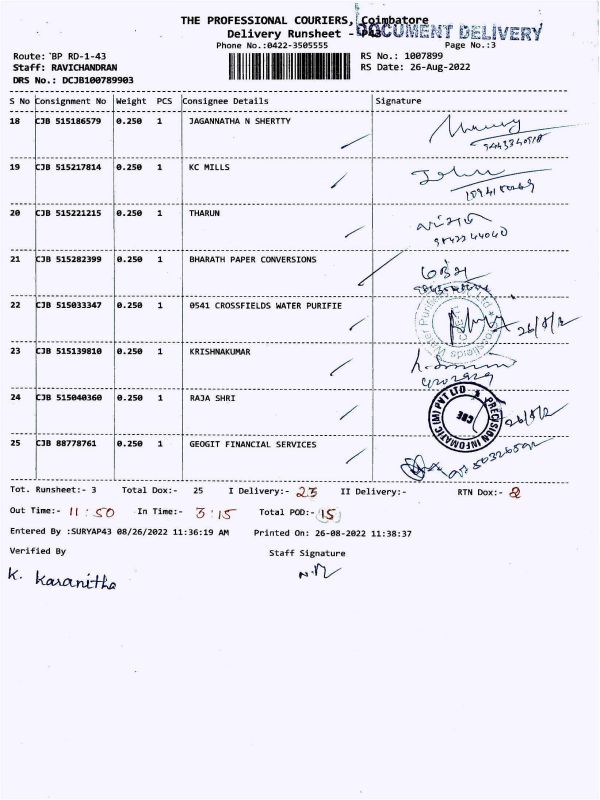 THE PROFESSIONAL COURIERS, Coimbatore
Delivery Runsheet - P43
DOCUMENT DELIVERY
Phone No.:0422-3505555
Page No.:3
Route: BP RD-1-43
RS No.: 1007899
Staff: RAVICHANDRAN
RS Date: 26-Aug-2022
DRS No.: DCJB100789903
S No Consignment No Weight PCS Consignee Details Signature
18 CJB 515186579 0.250 1 JAGANNATHA N SHERTTY
19 CJB 515217814 0.250 1 KC MILLS
20 CJB 515221215 0.250 1 THARUN
9842244040
21 CJB 515282399 0.250 1 BHARATH PAPER CONVERSIONS
22 CJB 515033347 0.250 1 0541 CROSSFIELDS WATER PURIFIE
Crossfields Water Purifiers Pvt Ltd
26/8/22
23 CJB 515139810 0.250 1 KRISHNAKUMAR
24 CJB 515040360 0.250 1 RAJA SHRI
PRECISION INFOMATIC (M) PVT LTD
CBE
26/8/22
25 CJB 88778761 0.250 1 GEOGIT FINANCIAL SERVICES
Tot. Runsheet:- 3 Total Dox:- 25 I Delivery:- 23 II Delivery:- RTN Dox:- 2
Out Time:- 11:50 In Time:- 3:15 Total POD:- 15
Entered By :SURYAP43 08/26/2022 11:36:19 AM Printed On: 26-08-2022 11:38:37
Verified By Staff Signature
K. Karanitha